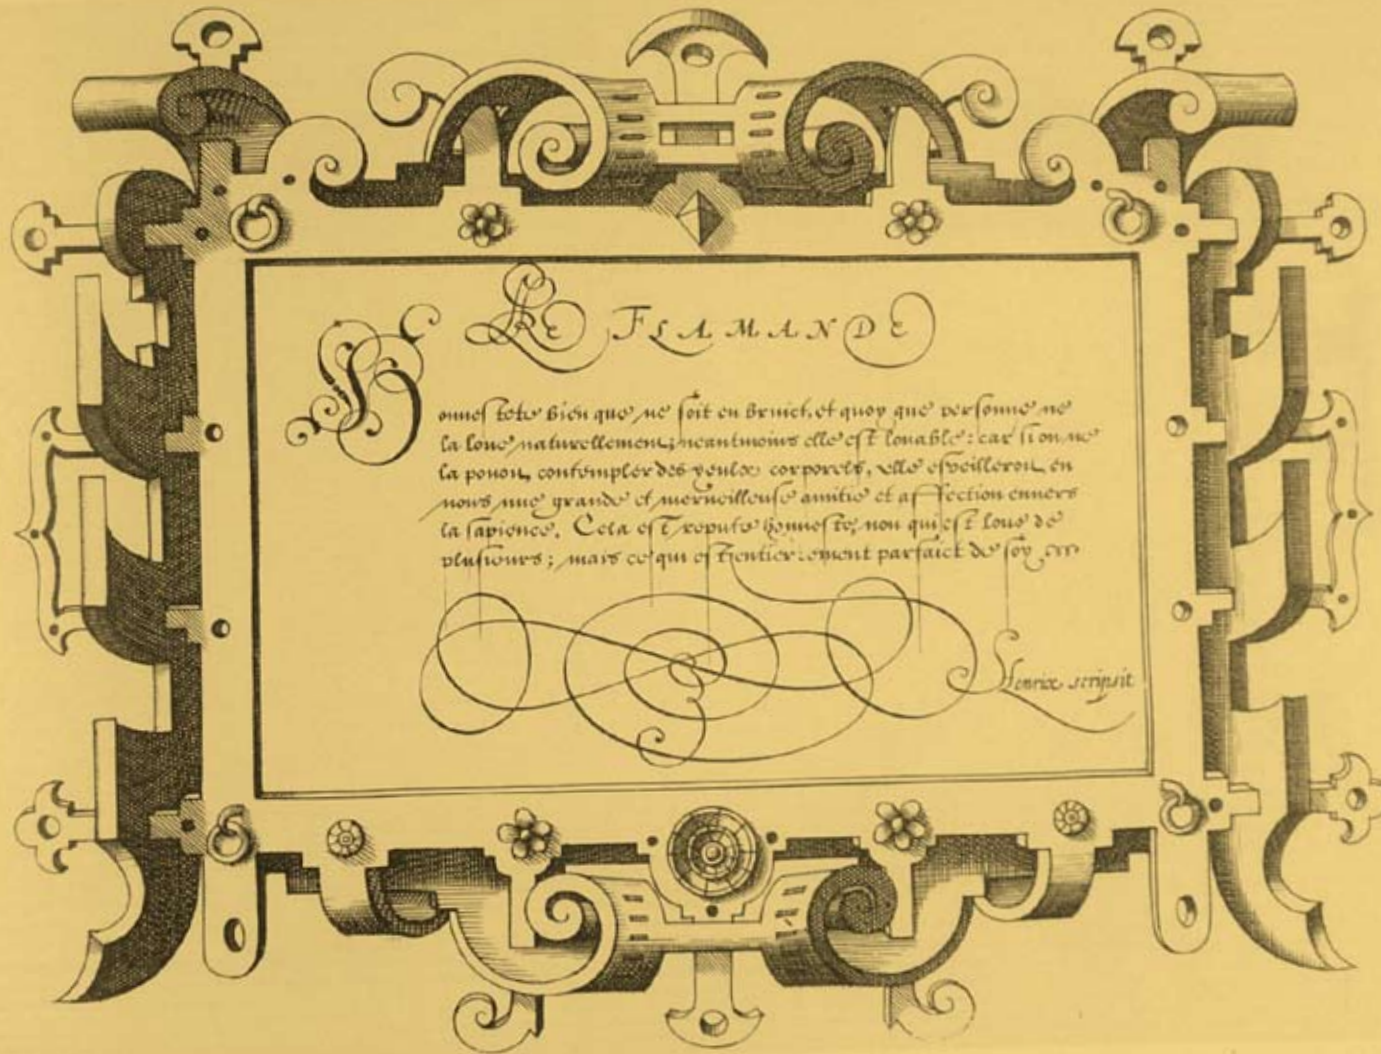 LE FLAMANDE
Honnestete bien que ne soit en bruict, et quoy que personne ne
la loue naturellement; neantmoins elle est louable: car si on ne
la pouoit contempler des yeulx corporels, elle esveilleroit en
nous une grande et merveilleuse amitie et affection envers
la sapience. Cela est repute honneste, non qui est loue de
plusieurs; mais ce qui est entierement parfaict de soy
Henrix scripsit